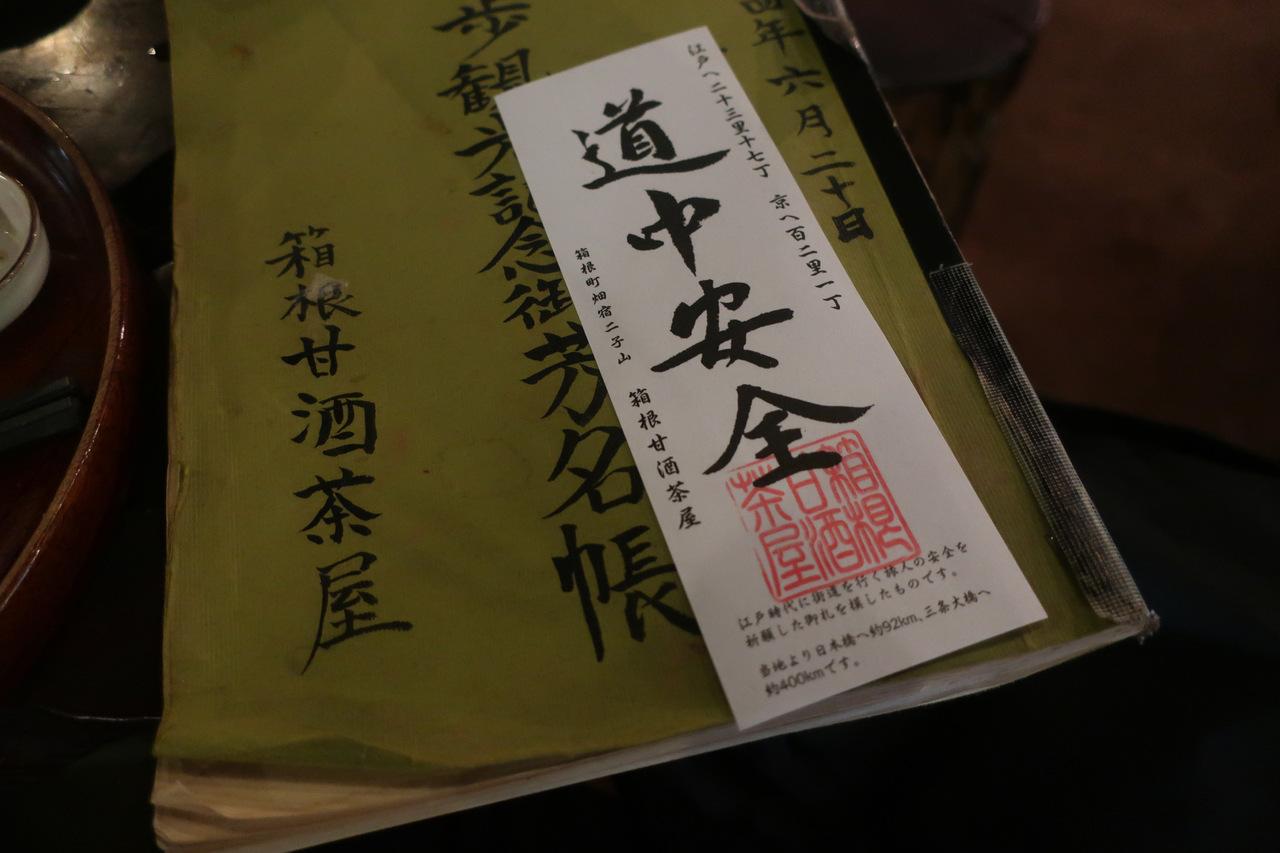 四年六月二十日
歩観光記念御芳名帳
箱根甘酒茶屋
江戸へ二十三里十七丁
京へ百二里一丁
道中安全
箱根町畑宿二子山
箱根甘酒茶屋
箱根
甘酒
茶屋
江戸時代に街道を行く旅人の安全を
祈願した御札を模したものです。
当地より日本橋へ約92km、三条大橋へ
約400kmです。